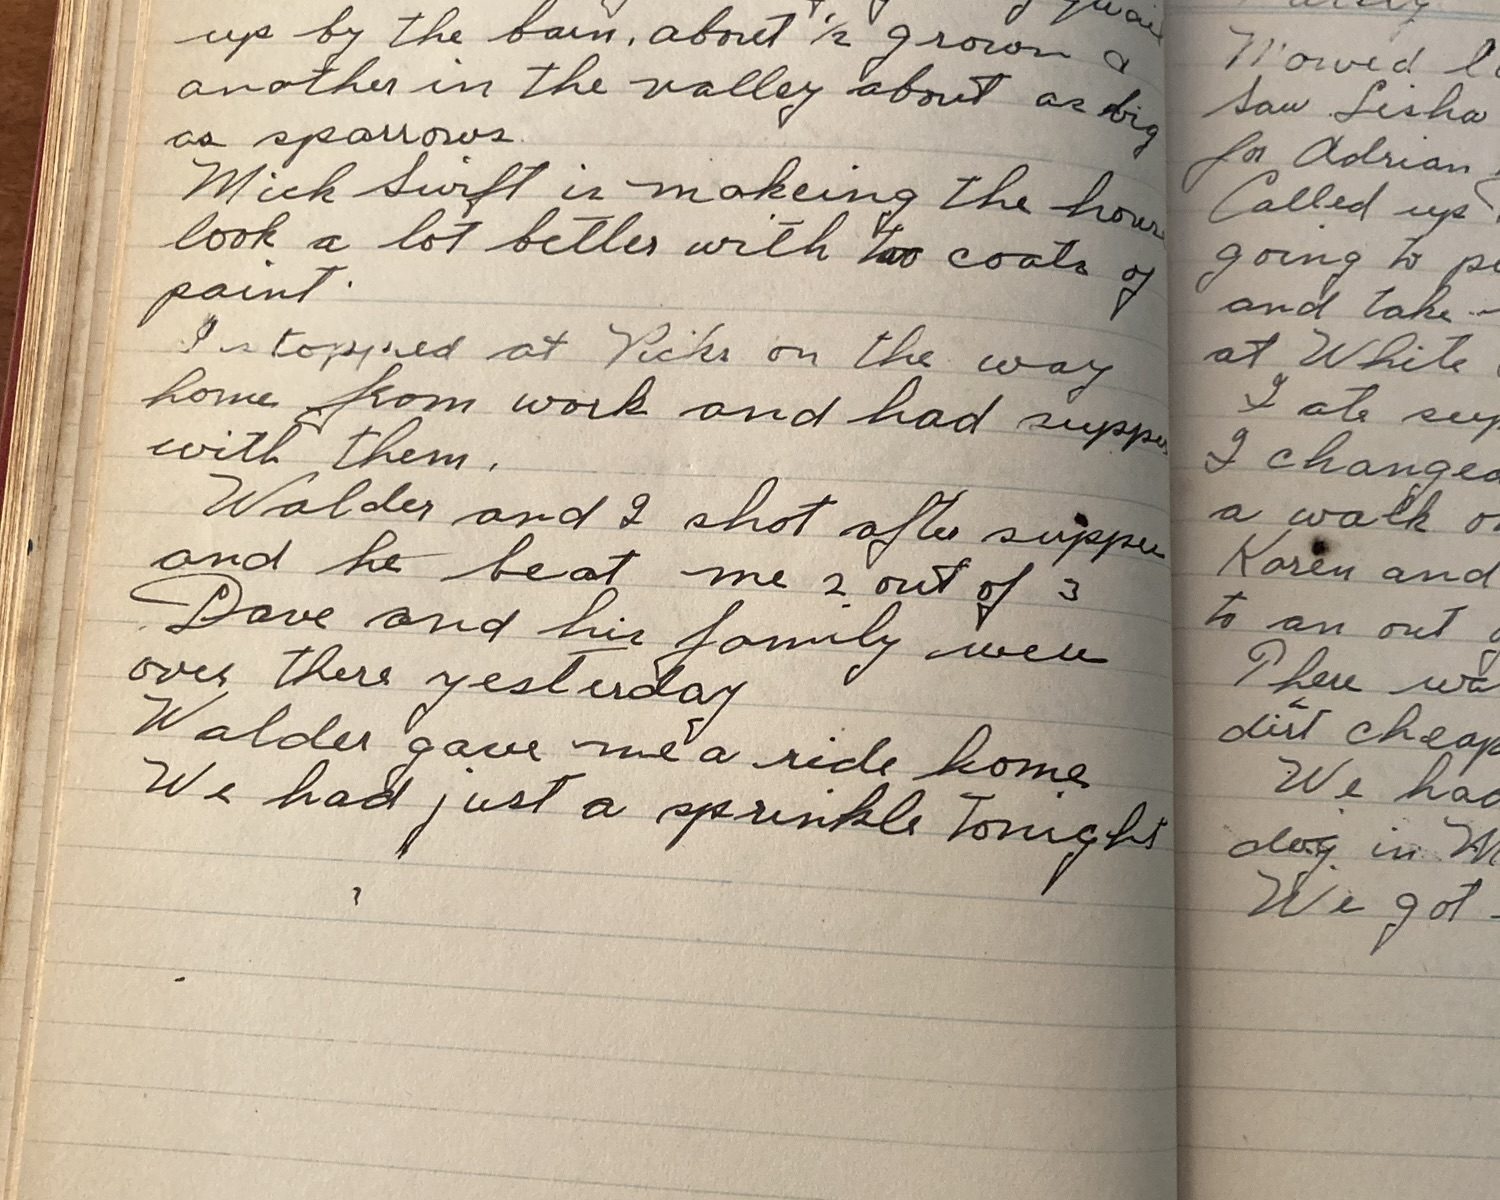 quail
up by the barn, about 1/2 grown a
another in the valley about as big
as sparrows.
Mick Swift is makeing the house
look a lot better with two coats of
paint.
I stopped at Vicks on the way
home from work and had supper
with them.
Walder and I shot after supper
and he beat me 2 out of 3
Dave and his family were
over there yesterday
Walder gave me a ride home
We had just a sprinkle tonight
Mowed
Saw Lisha
for Adrian
Called up
going to
and take
at White
I ate sup
I changed
a walk
Karen and
to an out
There wa
dirt cheap
We had
dog in
We got